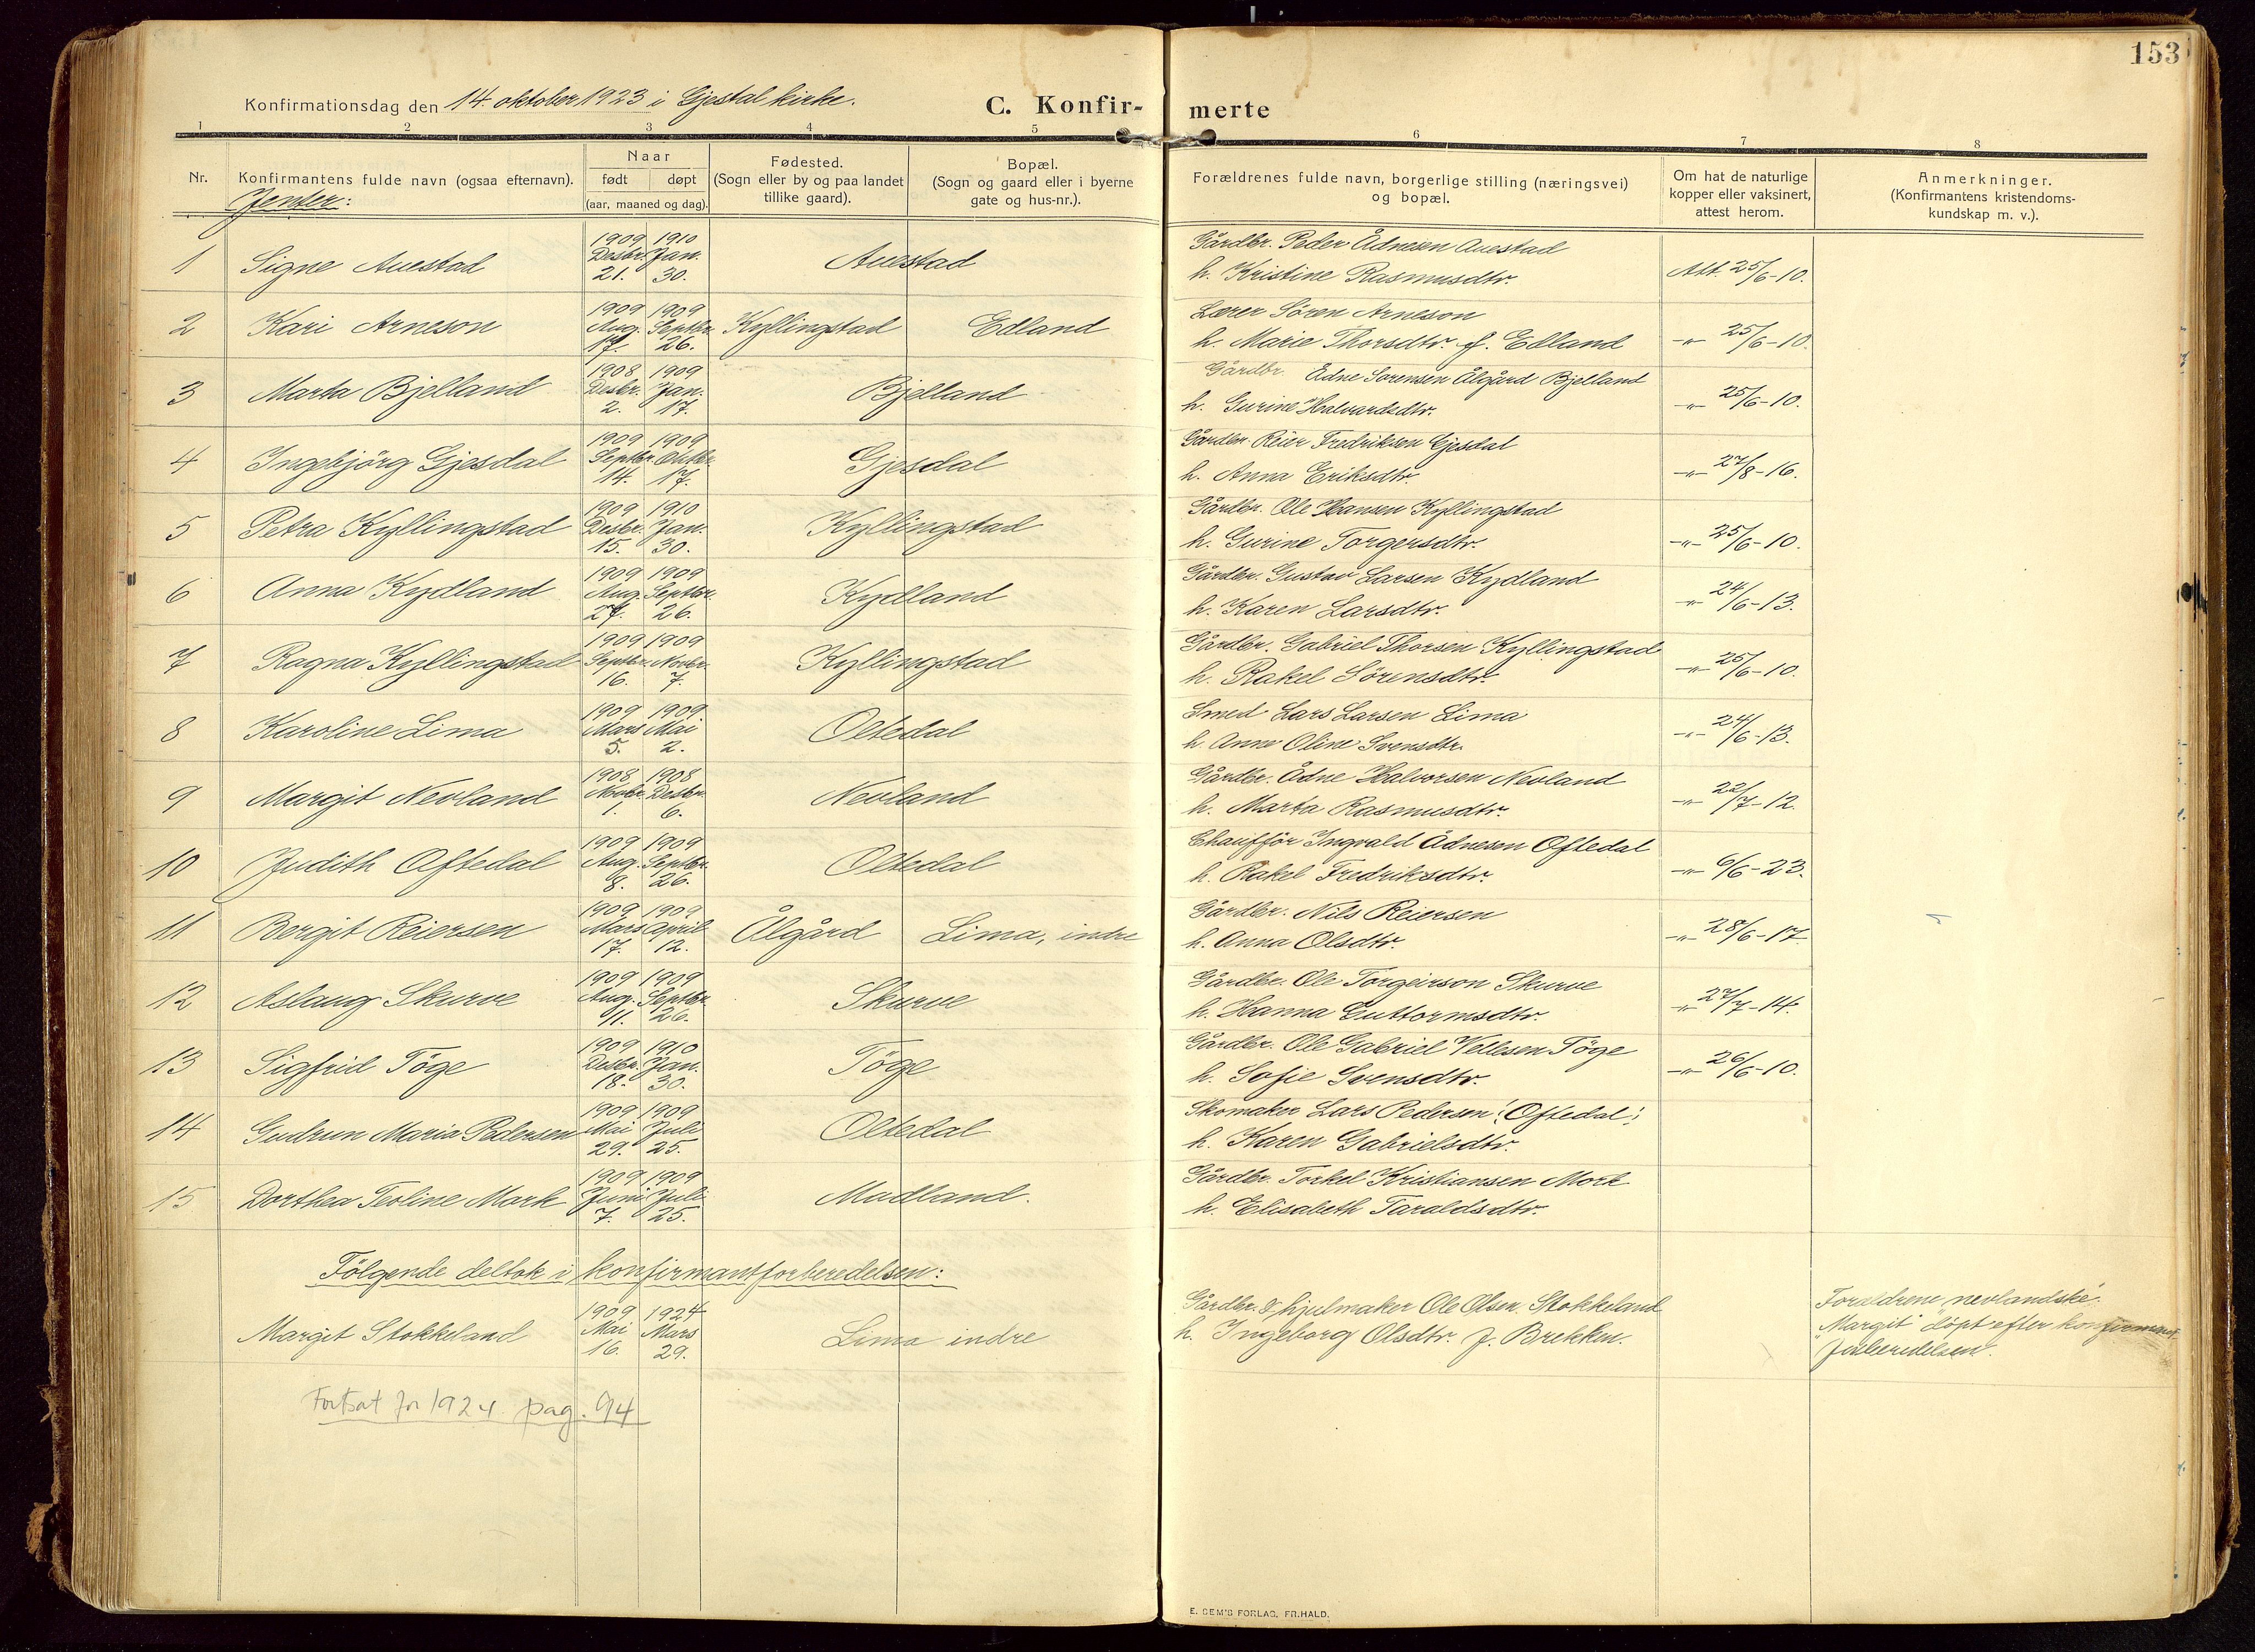 153
Konfirmationsdag den 14. oktober 1923 i Gjestal kirke.
C. Konfir- merte
1 2 3 4 5 6 7 8
Nr.
Konfirmantens fulde navn (ogsaa efternavn).
Naar
født døpt
(aar, maaned og dag).
Fødested.
(Sogn eller by og paa landet
tillike gaard).
Bopæl.
(Sogn og gaard eller i byerne
gate og hus-nr.).
Forældrenes fulde navn, borgerlige stilling (næringsvei)
og bopæl.
Om hat de naturlige
kopper eller vaksinert,
attest herom.
Anmerkninger.
(Konfirmantens kristendoms-
kundskap m. v.).
Jenter:
1909 1910 Gårdbr. Peder Ådnesen Auestad
1 Signe Auestad Desbr. Jan. Auestad
21. 30. h. Kristine Rasmusdtr. Att. 25/6-10.
1909 1909 Lærer Sören Arneson
2 Kari Arneson Aug. Septbr. Kyllingstad Edland
17. 26. h. Marie Thorsdtr. f. Edland -"- 25/6-10.
1908 1909 Gårdbr. Ådne Sorensen Ålgård Bjelland
3 Marta Bjelland Desbr. Jan. Bjelland
2. 17. h. Gurine Halvardsdtr. -"- 25/6-10.
1909 1909 Gårdbr. Reier Fredriksen Gjesdal
4 Ingebjörg Gjesdal Septbr. Oktbr. Gjesdal
14. 17. h. Anna Eriksdtr. -"- 27/8-16.
1909 1910 Gårdbr. Ole Hansen Kyllingstad
5 Petra Kyllingstad Desbr. Jan. Kyllingstad
15. 30. h. Gurine Torgersdtr. -"- 25/6-10.
1909 1909 Gårdbr. Gustav Larsen Kydland
6 Anna Kydland Aug. Septbr. Kydland
27. 26. h. Karen Larsdtr. -"- 24/6-13.
1909 1909 Gårdbr. Gabriel Thorsen Kyllingstad
7 Ragna Kyllingstad Septbr. Novbr. Kyllingstad
16. 7. h. Rakel Sörensdtr. -"- 25/6-10.
1909 1909 Smed Lars Larsen Lima
8 Karoline Lima Mars Mai Oltedal
5. 2. h. Anne Oline Svensdtr. -"- 24/6-13.
1908 1908 Gårdbr. Ådne Halvorsen Nevland
9 Margit Nevland Novbr. Desbr. Nevland
1. 6. h. Marta Rasmusdtr. -"- 22/7-12.
1909 1909 Chaufför Ingvald Ådnesen Oftedal
10 Judith Oftedal Aug. Septbr. Oltedal
8. 26. h. Rakel Fredriksdtr. -"- 6/6-23.
1909 1909 Gårdbr. Nils Reiersen
11 Bergit Reiersen Mars April Ålgård Lima, indre
17. 12. h. Anna Olsdtr. -"- 28/6-17.
1909 1909 Gårdbr. Ole Torgeirson Skurve
12 Aslaug Skurve Aug. Septbr. Skurve
11. 26. h. Hanna Guttormsdtr. -"- 27/7-14.
1909 1910 Gårdbr. Ole Gabriel Vellesen Töge
13 Sigfrid Töge Desbr. Jan. Töge
18. 30. h. Sofie Svensdtr. -"- 26/6-10.
1909 1909 Skomaker Lars Pedersen (Oftedal)
14 Gudrun Maria Pedersen Mai Juli Oltedal
29. 25. h. Karen Gabrielsdtr.
1909 1909 Gårdbr. Torkel Kristiansen Mork
15 Dorthea Teoline Mork Juni Juli Madland.
7. 25. h. Elisabeth Taraldsdtr.
Fölgende deltok i konfirmantforberedelsen:
1909 1924 Gårdbr. & hjulmaker Ole Olsen Stokkeland Foreldrene
Margit Stokkeland Mai Mars Lima indre
16. 29. h. Ingeborg Olsdtr. f. Brekken. Margit døpt efter konfirmant-
forberedelsen.
Fortsat for 1924 pag. 94
E. SEM'S FORLAG, FR.HALD.